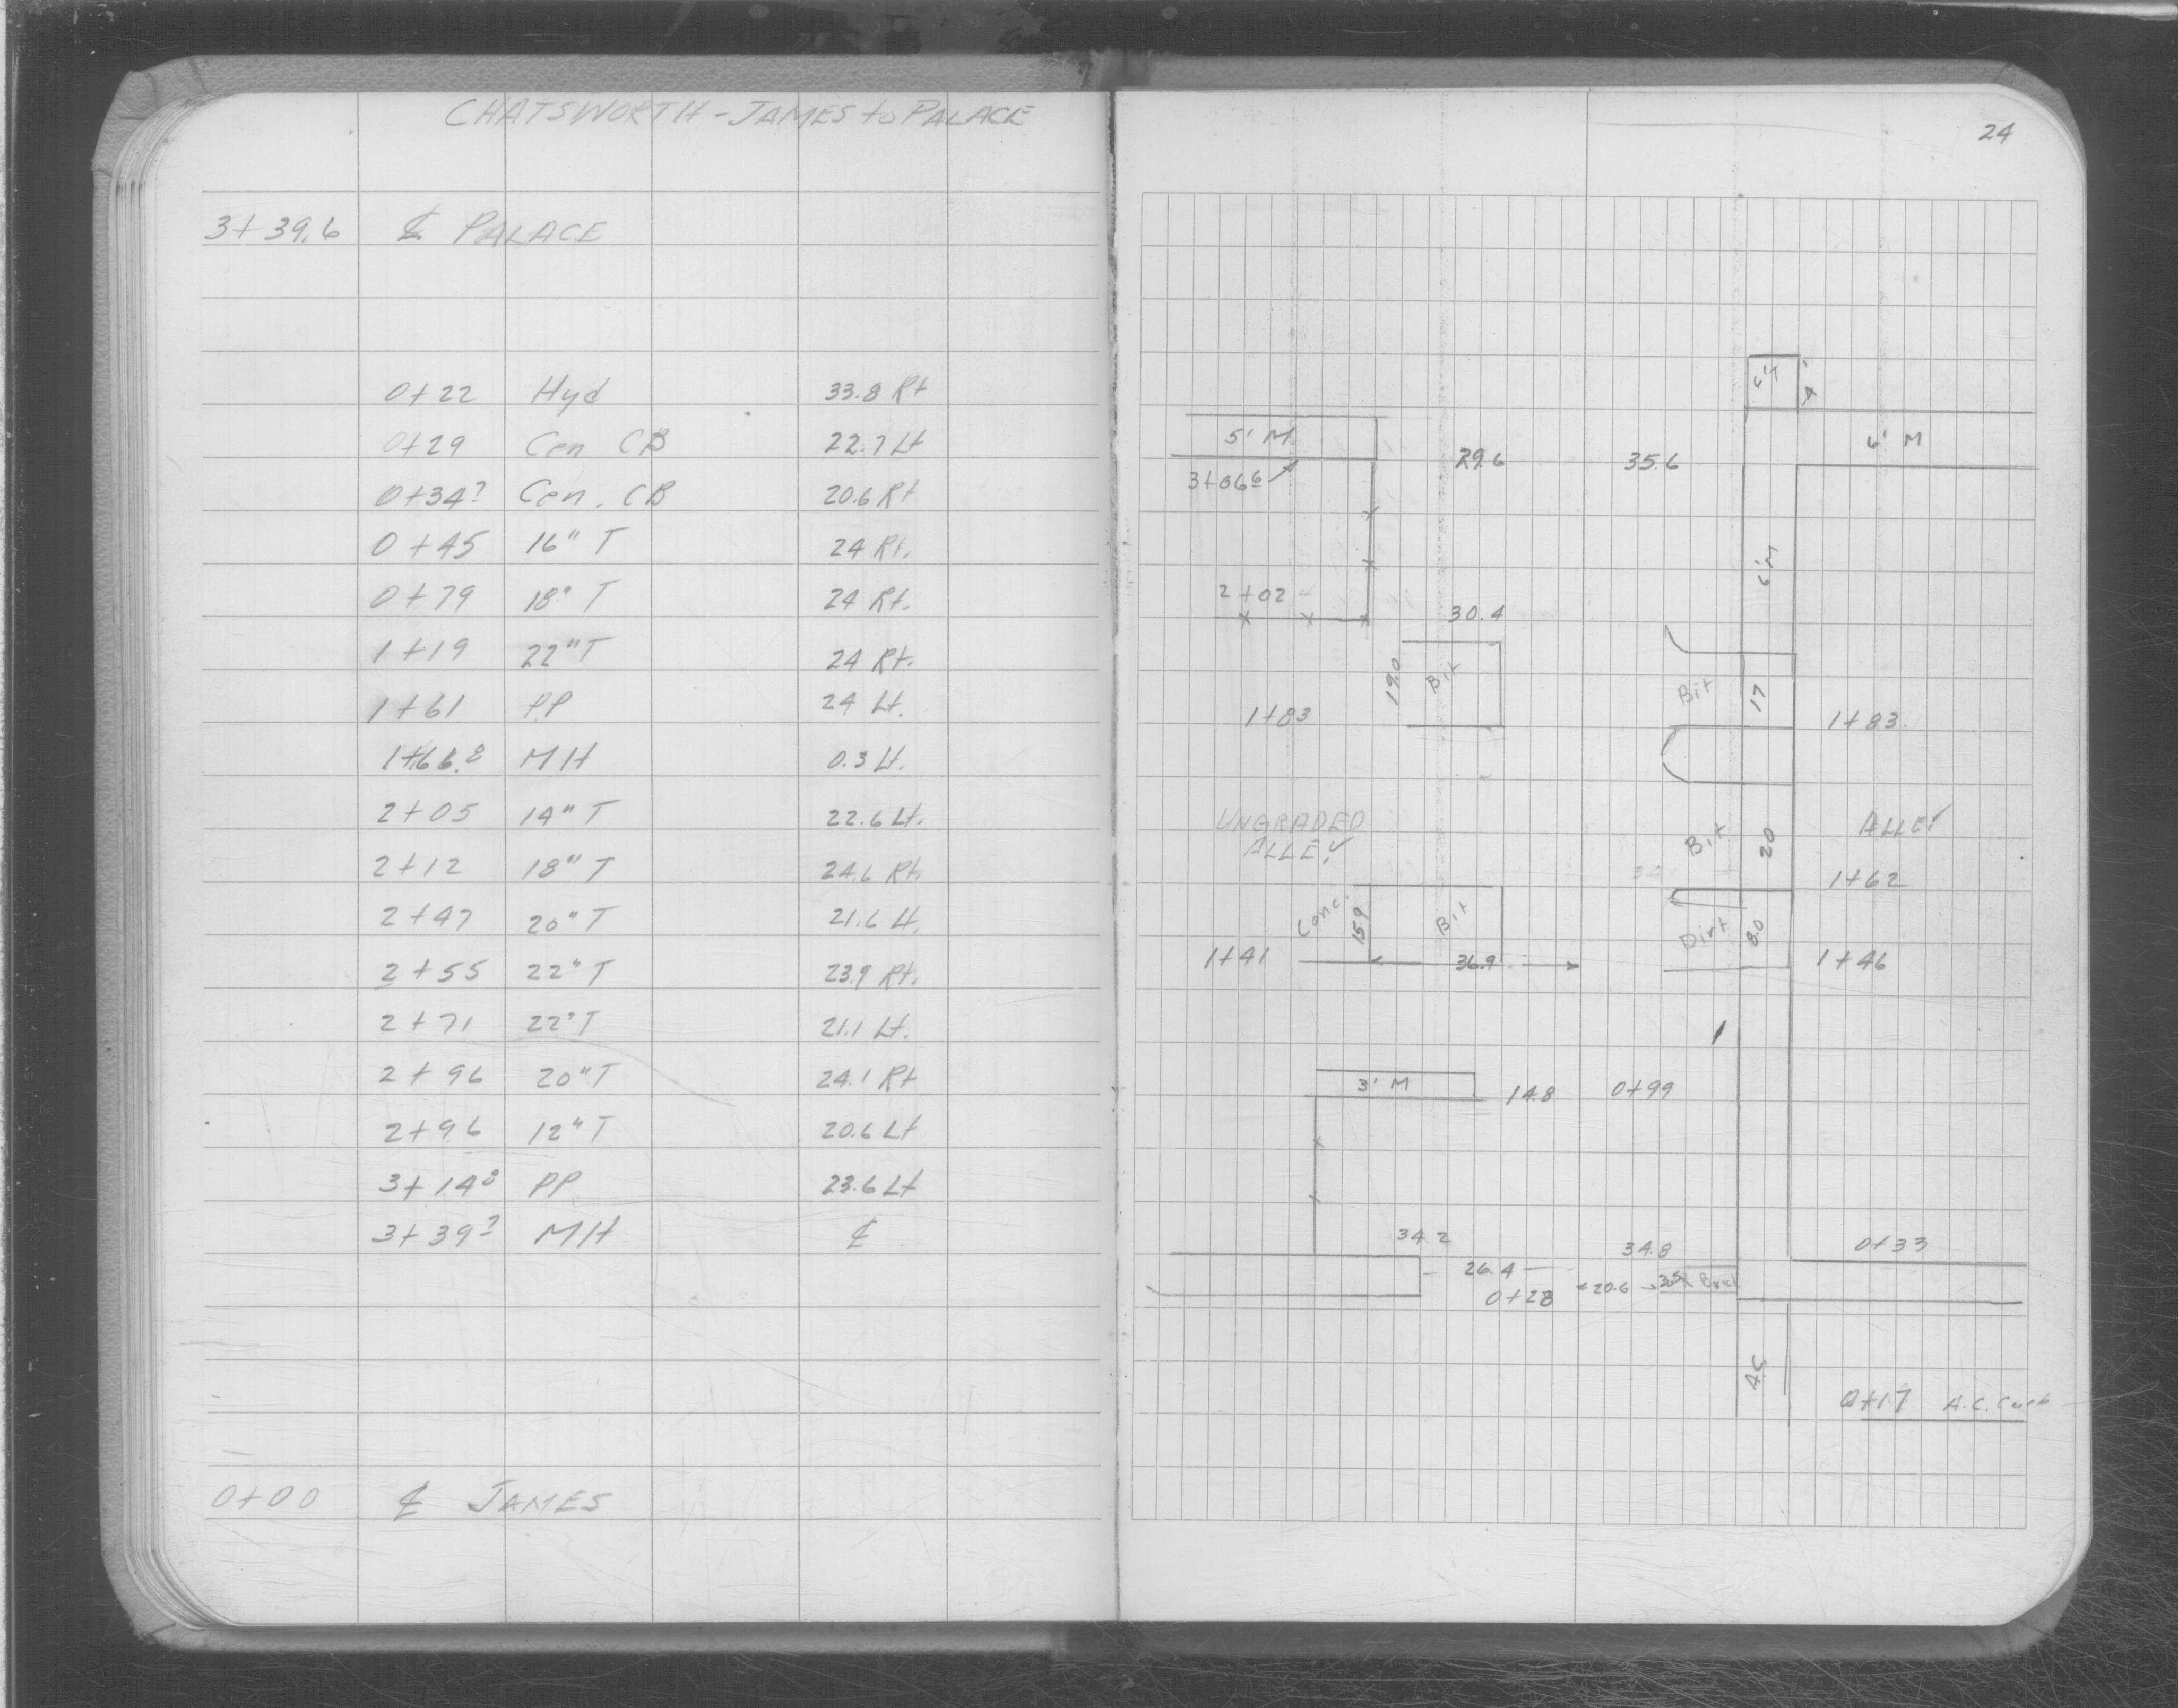 CHATSWORTH - JAMES to PALACE
3+39.6 ℄ PALACE
0+22 Hyd 33.8 Rt
0+29 Cen CB 22.7 Lt
0+34² Cen. CB 20.6 Rt
0+45 16" T 24 Rt.
0+79 18" T 24 Rt.
1+19 22" T 24 Rt.
1+61 PP 24 Lt.
1+66.8 MH 0.3 Lt.
2+05 14" T 22.6 Lt.
2+12 18" T 24.6 Rt.
2+47 20" T 21.6 Lt.
2+55 22" T 23.9 Rt.
2+71 22" T 21.1 Lt.
2+96 20" T 24.1 Rt
2+96 12" T 20.6 Lt
3+14⁸ PP 23.6 Lt
3+39² MH ℄
0+00 ℄ JAMES
24
4'
5' M
29.6
35.6
6' M
3+06⁶
6'M
2+02
30.4
19.0
Bit
Bit
17
1+83
1+83
UNGRADED
ALLEY
Bit
20
ALLEY
1+62
Conc.
15.9
Bit
Dirt
8.0
1+41
36.9
1+46
3' M
14.8
0+99
34.2
34.8
0+33
26.4
20.6
0+28
0+17 A.C. Curb